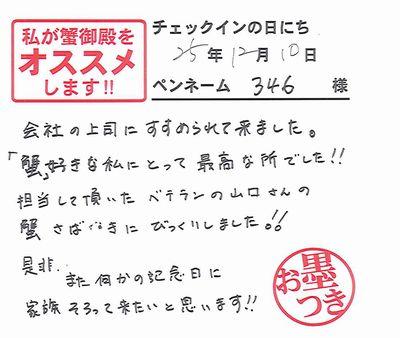 私が蟹御殿を
オススメ
します!!
チェックインの日にち
25年12月10日
ペンネーム 346 様
会社の上司にすすめられて来ました。
「蟹」好きな私にとって最高な所でした!!
担当して頂いたベテランの山口さんの
蟹さばきにびっくりしました!!
是非、
また何かの記念日に
家族そろって来たいと思います!!
お墨
つき